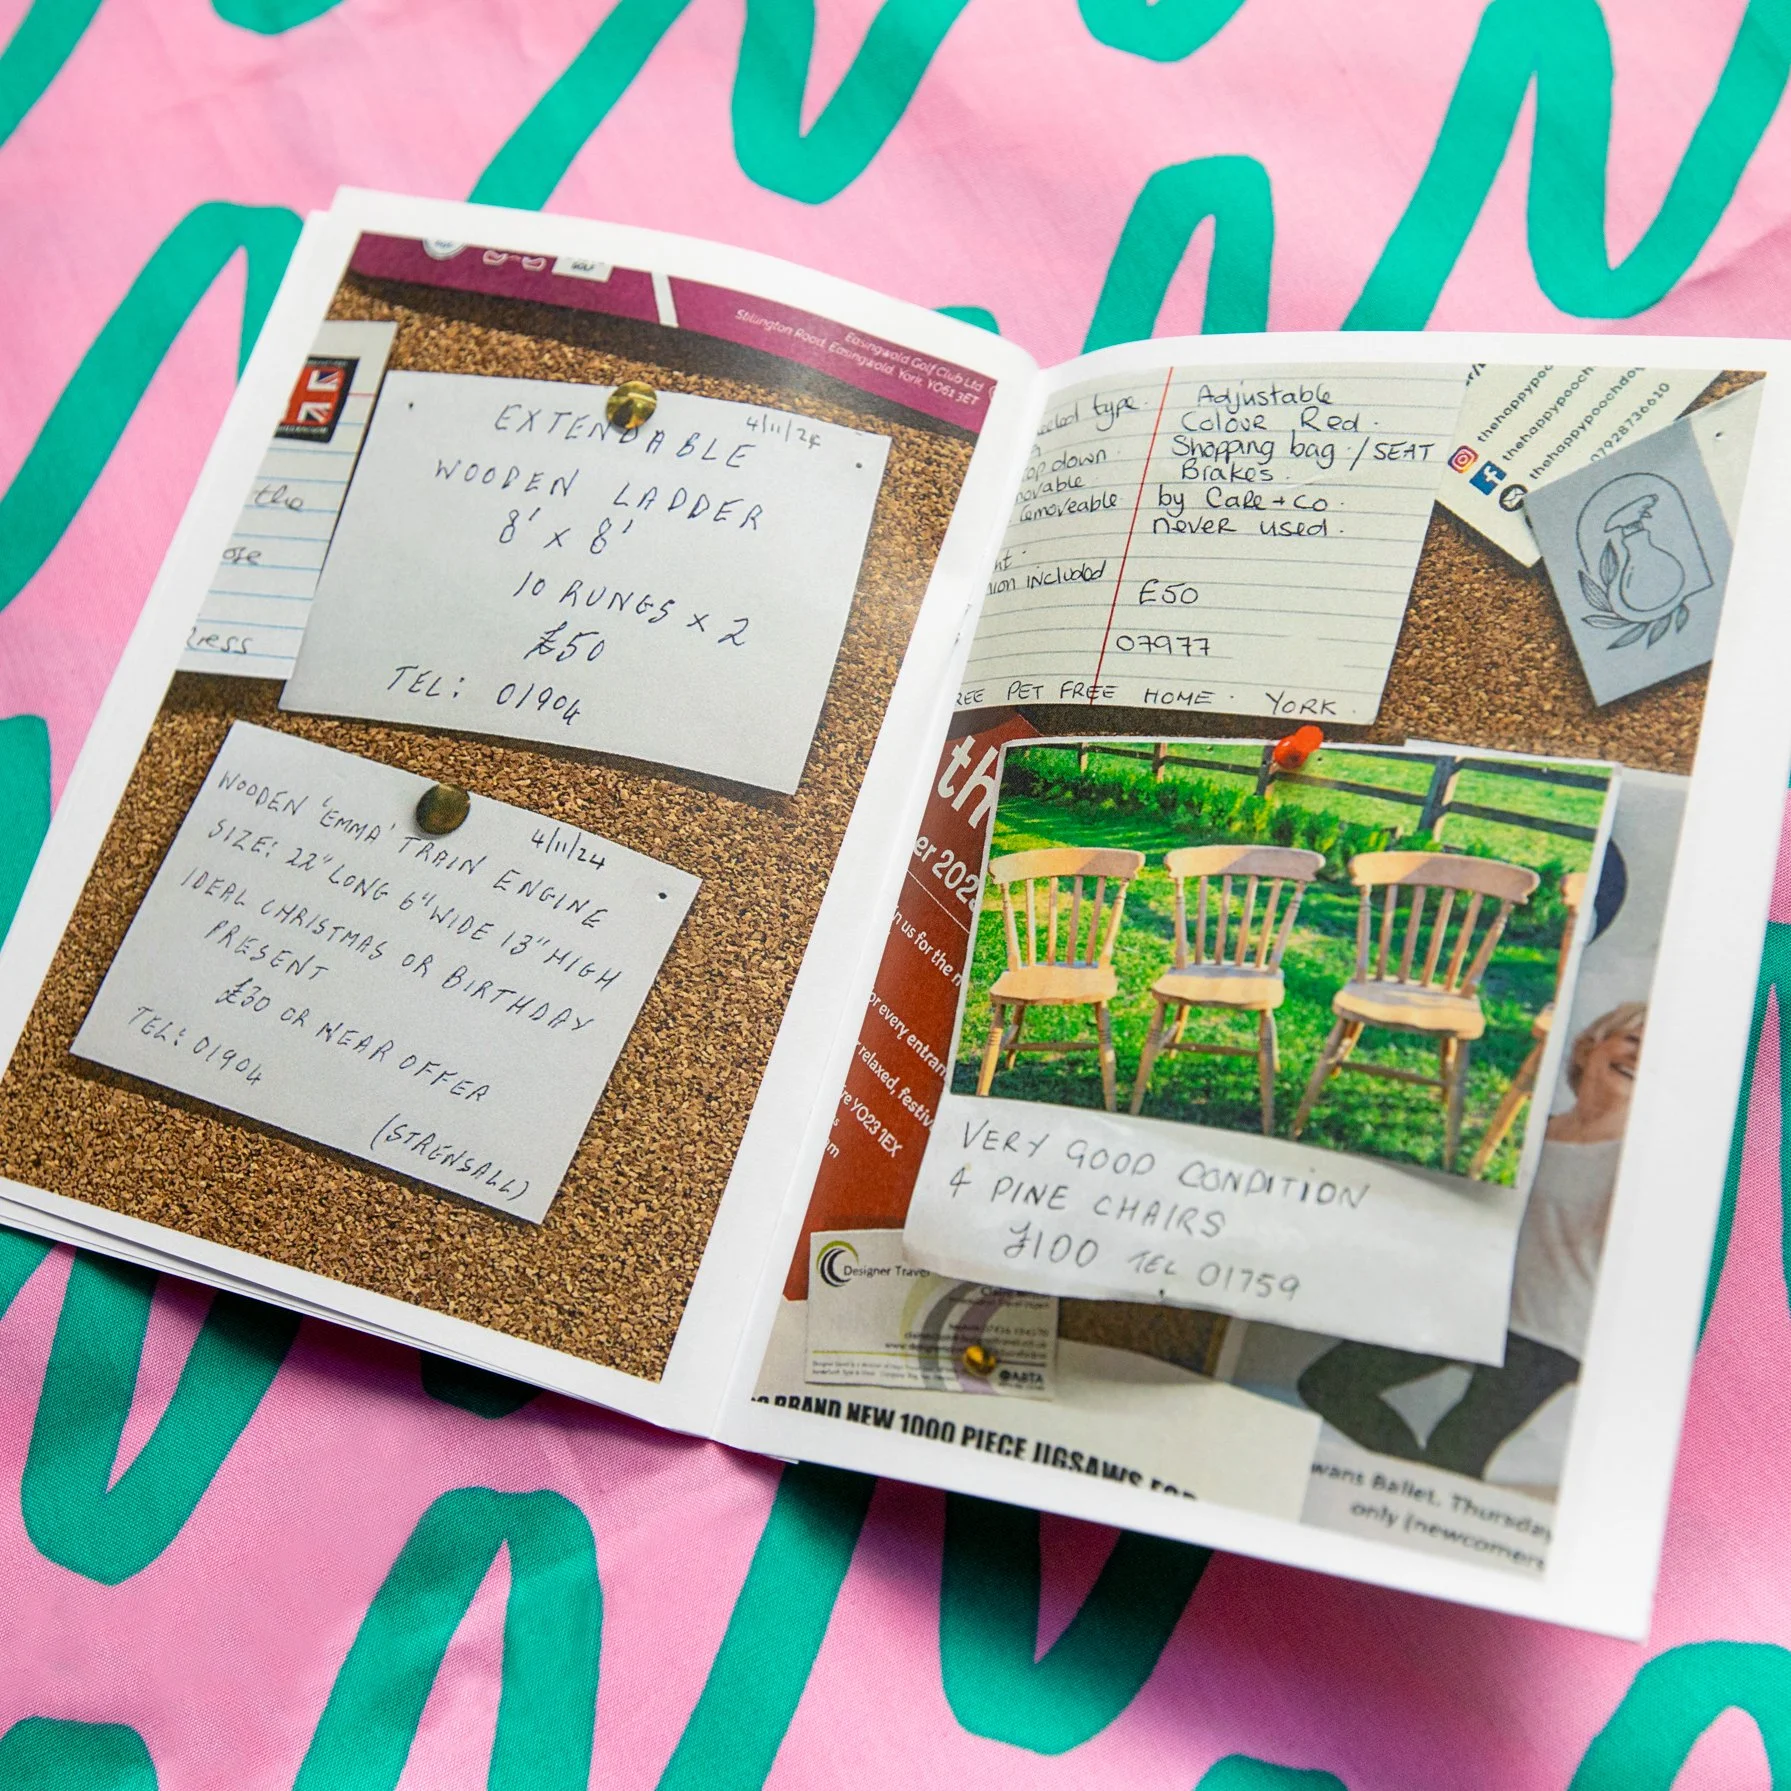 GOLF
Easingwold Golf Club Ltd
Stillington Road, Easingwold, York, YO61 3ET
the
ose
ress
EXTENDABLE
4/11/24
WOODEN LADDER
8' x 8'
10 RUNGS x 2
£50
TEL: 01904
WOODEN 'EMMA' TRAIN ENGINE
4/11/24
SIZE: 22" LONG 6" WIDE 13" HIGH
IDEAL CHRISTMAS OR BIRTHDAY
PRESENT
£30 OR NEAR OFFER
TEL: 01904
(STRENSALL)
type. Adjustable
Colour Red.
op down. Shopping bag / SEAT
ovable Brakes.
emoveable by Care + Co.
never used.
nion included
£50
07977
REE PET FREE HOME. YORK.
thehappypoc
thehappypooch
thehappypoochdo
07928736610
th
er 202
n us for the
or every entran
relaxed, festiv
re YO23 1EX
om
VERY GOOD CONDITION
4 PINE CHAIRS
£100 TEL 01759
Designer Travel
ABTA
BRAND NEW 1000 PIECE JIGSAWS FOR
wans Ballet. Thursday
only (newcomers